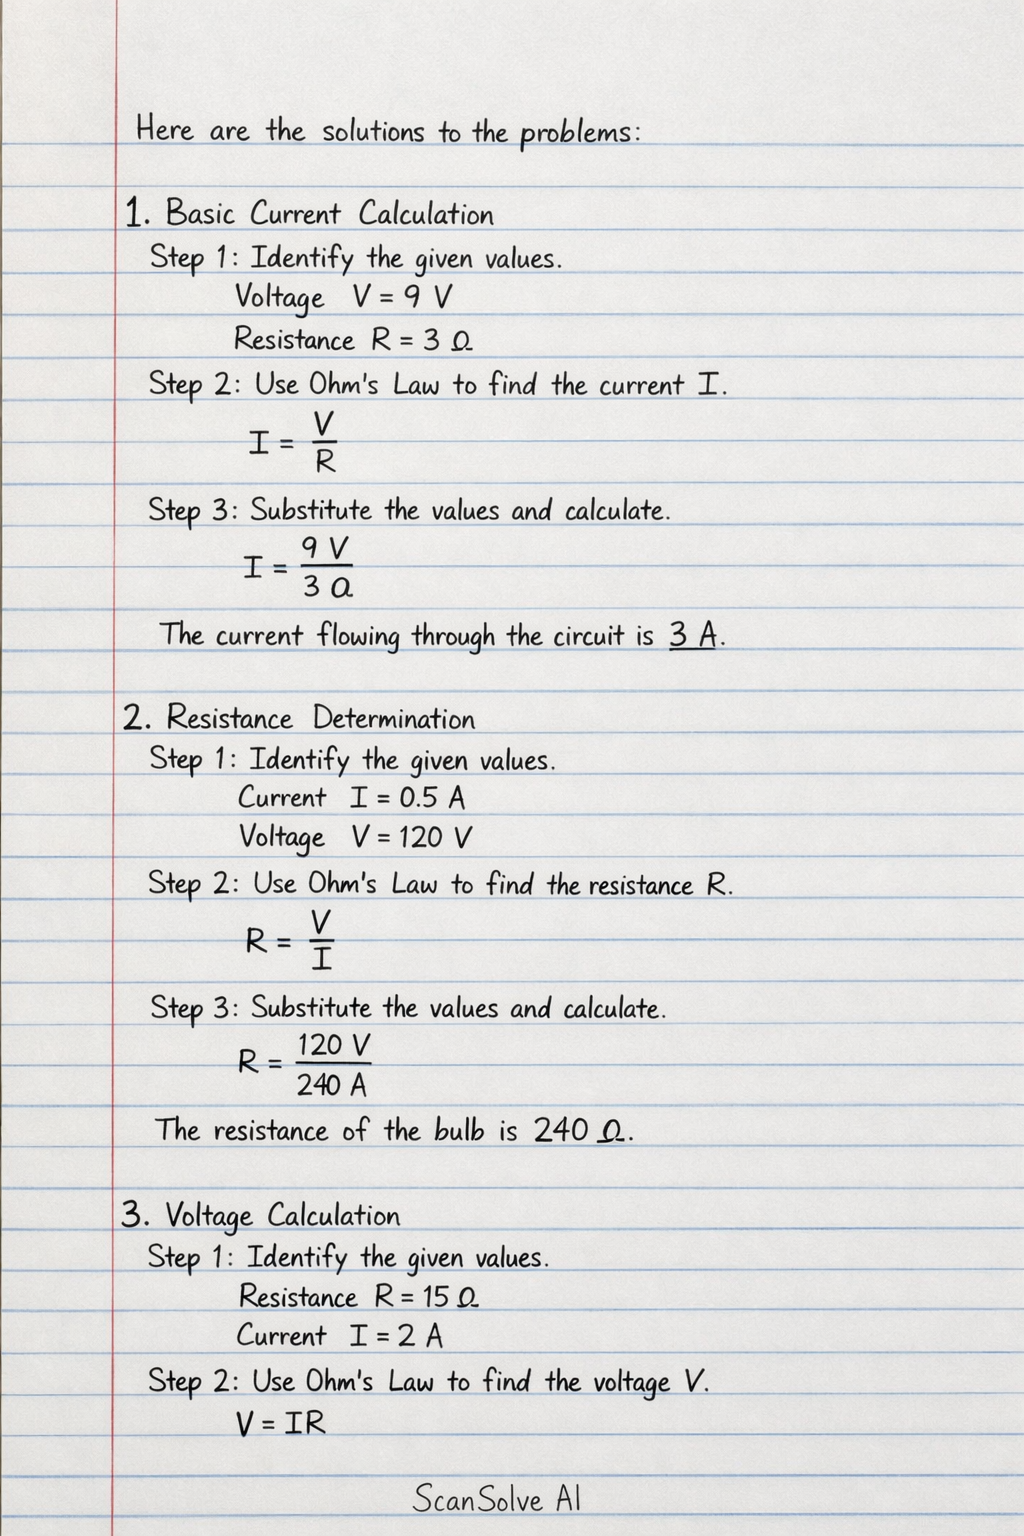 Here are the solutions to the problems:
1. Basic Current Calculation
Step 1: Identify the given values.
Voltage V = 9 V
Resistance R = 3 Ω
Step 2: Use Ohm's Law to find the current I.
I = V/R
Step 3: Substitute the values and calculate.
I = 9 V/3 Ω
The current flowing through the circuit is 3 A.
2. Resistance Determination
Step 1: Identify the given values.
Current I = 0.5 A
Voltage V = 120 V
Step 2: Use Ohm's Law to find the resistance R.
R = V/I
Step 3: Substitute the values and calculate.
R = 120 V/240 A
The resistance of the bulb is 240 Ω.
3. Voltage Calculation
Step 1: Identify the given values.
Resistance R = 15 Ω
Current I = 2 A
Step 2: Use Ohm's Law to find the voltage V.
V = IR
ScanSolve AI